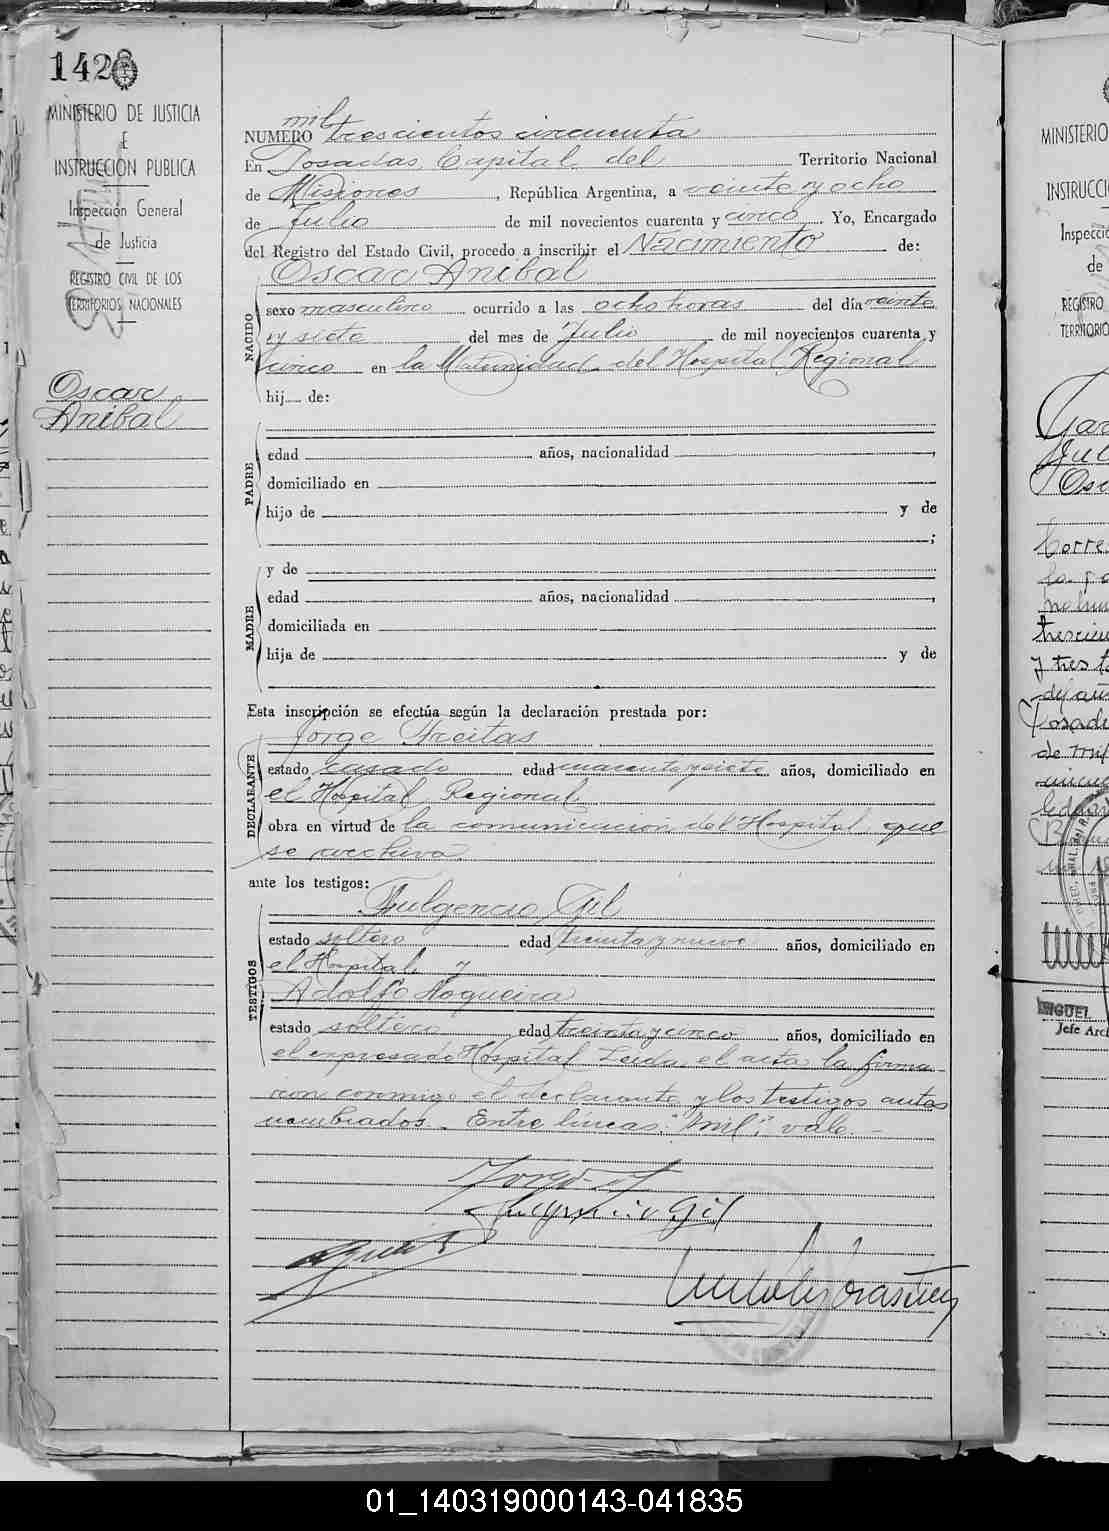 142
MINISTERIO DE JUSTICIA
E
INSTRUCCION PUBLICA
Inspección General
de Justicia
REGISTRO CIVIL DE LOS
TERRITORIOS NACIONALES
Oscar
Anibal
mil
NUMERO trescientos cincuenta
En Posadas, Capital del Territorio Nacional
de Misiones, República Argentina, a veinte y ocho
de Julio de mil novecientos cuarenta y cinco. Yo, Encargado
del Registro del Estado Civil, procedo a inscribir el Nacimiento de:
NACIDO
Oscar Anibal
sexo masculino ocurrido a las ocho horas del día veinte
y siete del mes de Julio de mil novecientos cuarenta y
cinco en la Maternidad del Hospital Regional
hij.... de:
PADRE
edad años, nacionalidad ,
domiciliado en
hijo de y de
;
MADRE
y de
edad años, nacionalidad ,
domiciliada en
hija de y de
Esta inscripción se efectúa según la declaración prestada por:
DECLARANTE
Jorge Freitas
estado casado edad cuarenta y siete años, domiciliado en
el Hospital Regional
obra en virtud de la comunicacion del Hospital que
se archiva
ante los testigos:
TESTIGOS
Fulgencio Gil
estado soltero edad treinta y nueve años, domiciliado en
el Hospital y
Adolfo Nogueira
estado soltero edad treinta y cinco años, domiciliado en
el expresado Hospital. Leida el acta la firma-
ron conmigo el declarante y los testigos antes
nombrados. Entre lineas: "mil": vale.-
Gil
MINISTERIO
INSTRUCCI
Inspecció
de
REGISTRO
TERRITORIO
Jul
Osc
Corre
trescien
y tres
Posada
de
MIGUEL
Jefe Arc
01_140319000143-041835